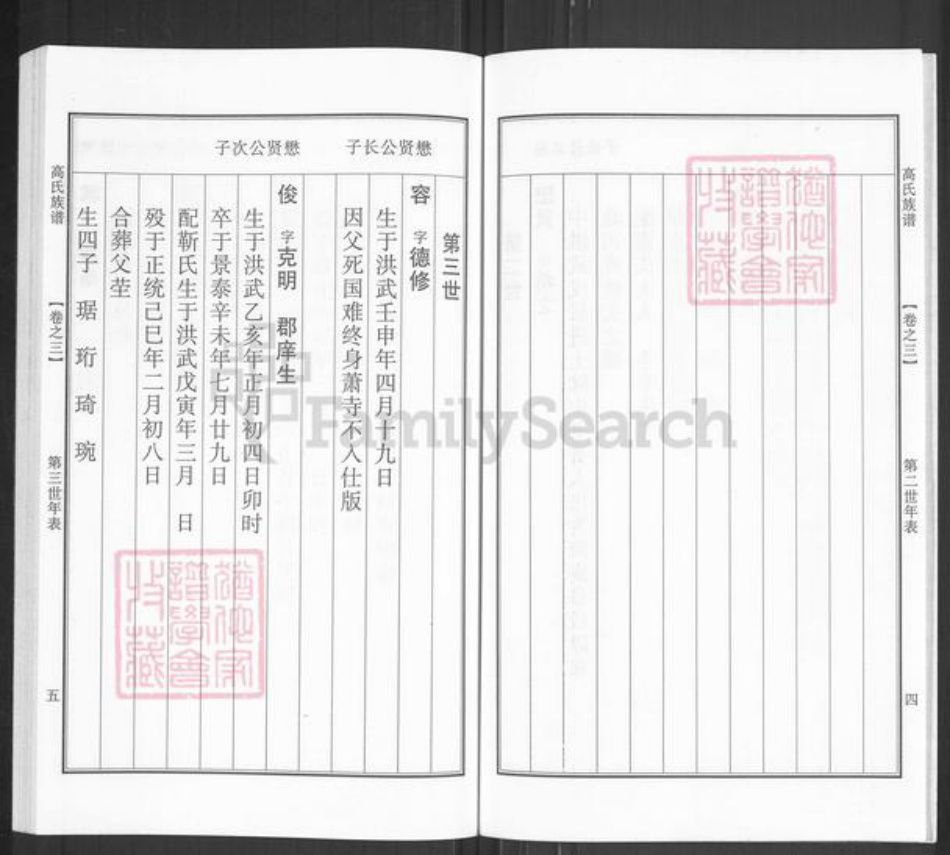 高氏族谱
【卷之三】
第二世年表
四
懋贤公长子
懋贤公次子
第三世
容 字德修
生于洪武壬申年四月十九日
因父死国难终身萧寺不入仕版
俊 字克明 郡庠生
生于洪武乙亥年正月初四日卯时
卒于景泰辛未年七月廿九日
配靳氏生于洪武戊寅年三月 日
殁于正统己巳年二月初八日
合葬父茔
生四子 琚 珩 琦 琬
高氏族谱
【卷之三】
第三世年表
五
FamilySearch